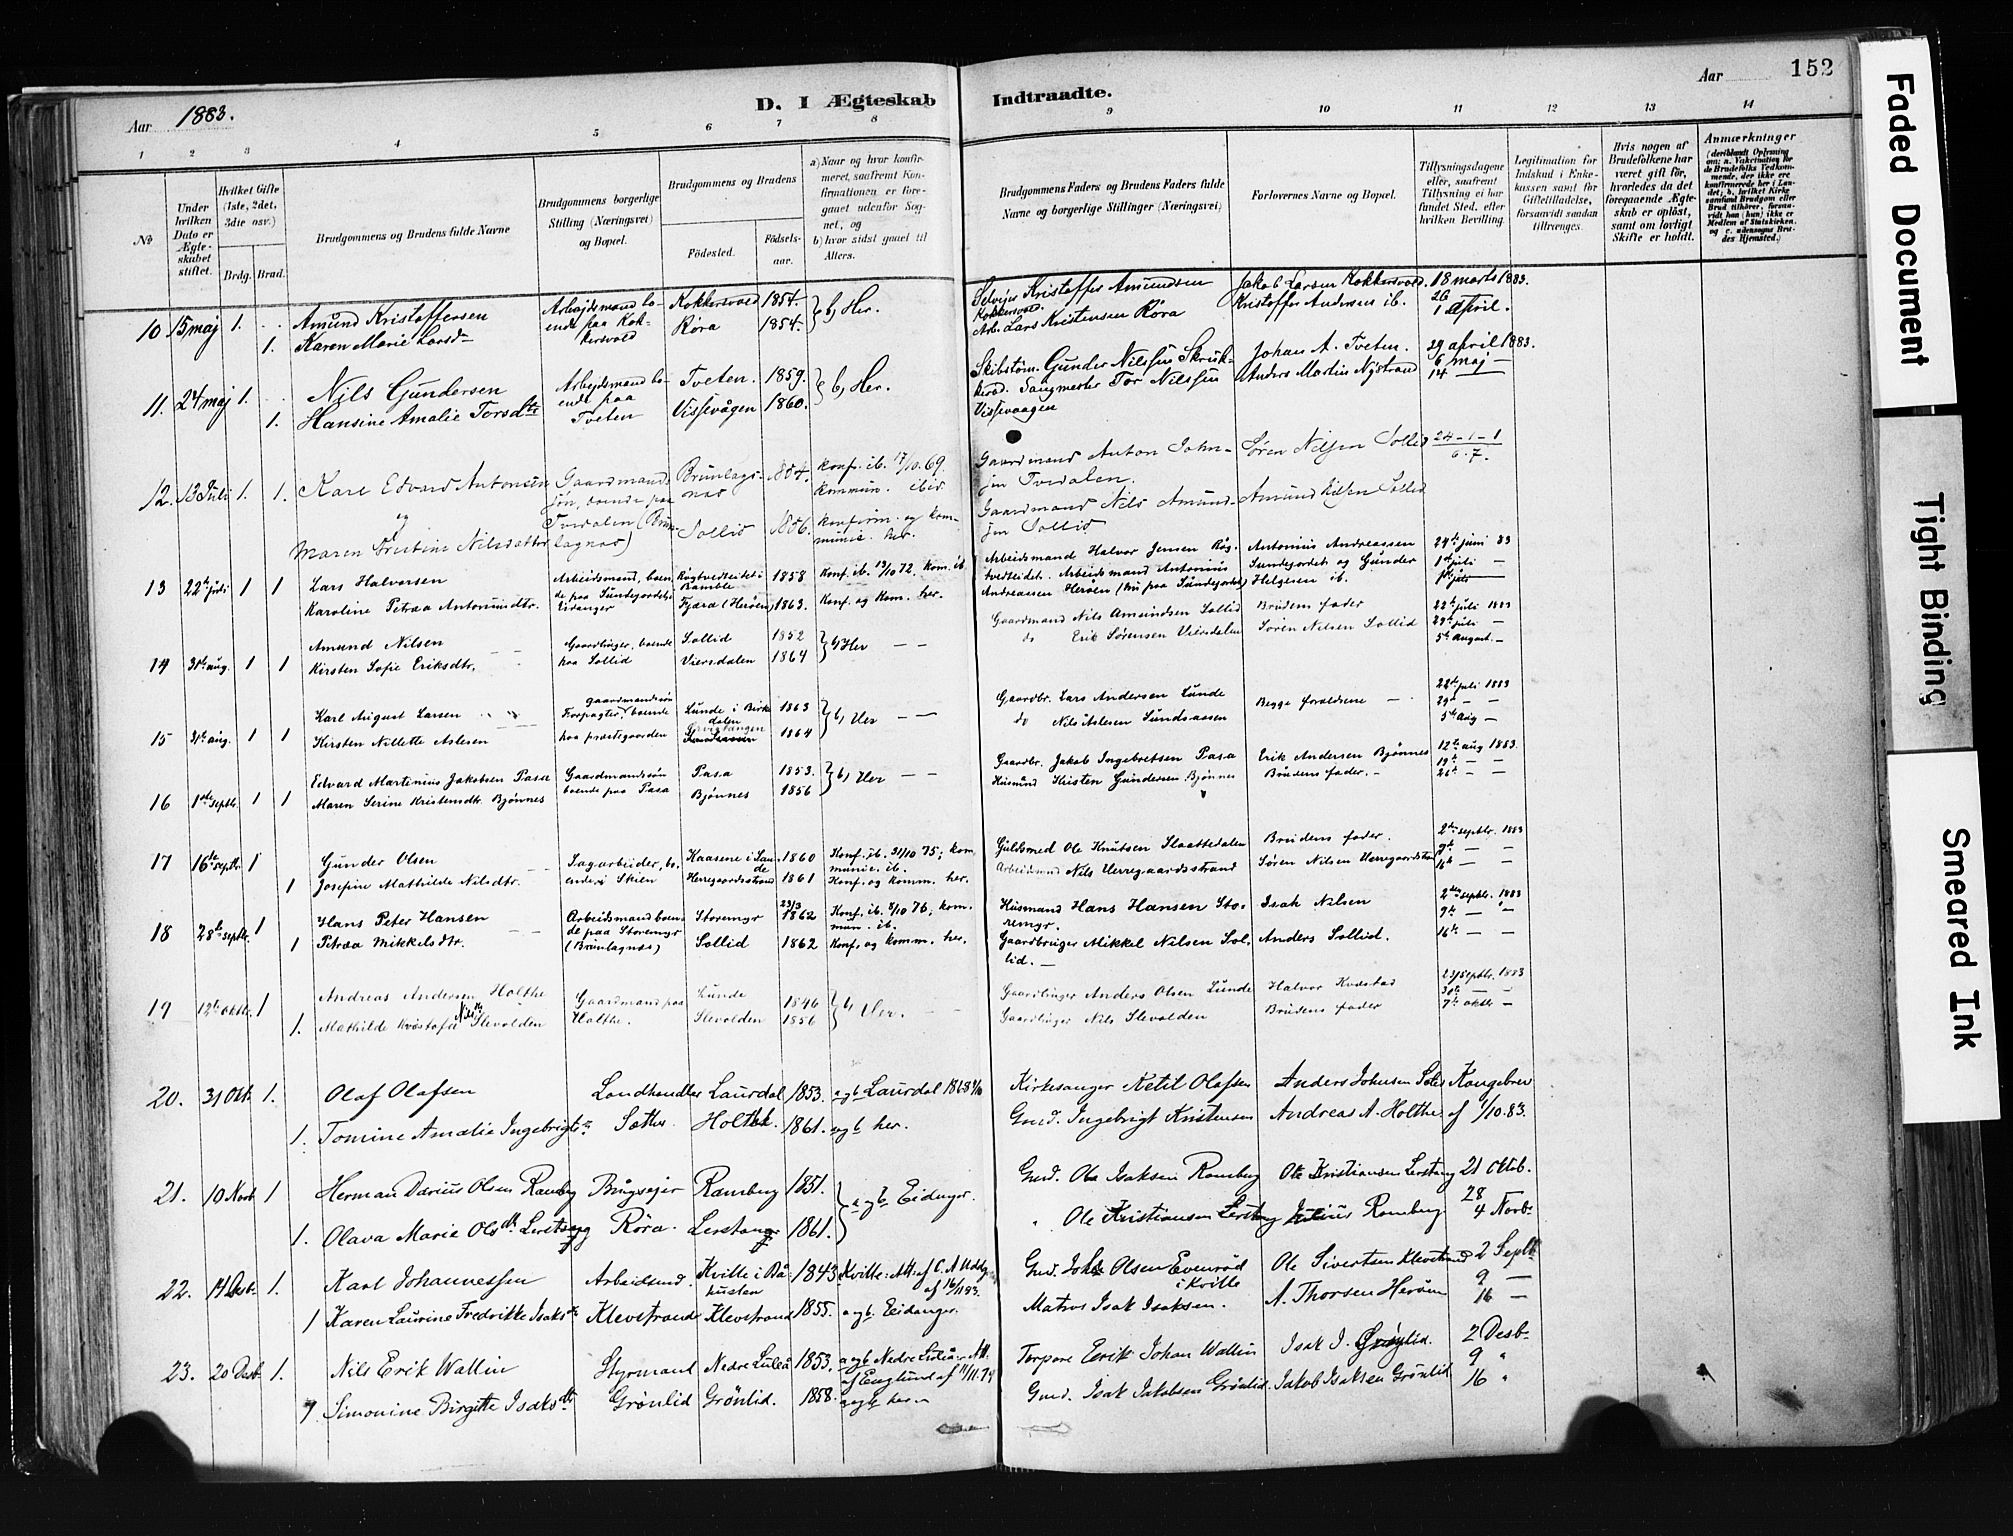 Aar 1883. D. I Ægteskab Indtraadte. Aar 152
1 2 3 4 5 6 7 8 9 10 11 12 13 14
№
Under hvilken Dato er Ægteskabet stiftet.
Hvilket Gifte (1ste, 2det, 3die osv.)
Brdg. Brud.
Brudgommens og Brudens fulde Navne
Brudgommens borgerlige Stilling (Næringsvei) og Bopæl.
Brudgommens og Brudens
Fødested. Fødsels-aar.
a) Naar og hvor konfirmeret, saafremt Konfirmationen er foregaaet udenfor Sognet, og
b) hvor sidst gaaet til Alters.
Brudgommens Faders og Brudens Faders fulde Navne og borgerlige Stillinger (Næringsvei)
Forlovernes Navne og Bopæl.
Tillysningsdagene eller, saafremt Tillysning ei har fundet Sted, efter hvilken Bevilling.
Legitimation for Indskud i Enkekassen samt for Giftetilladelse, forsaavidt saadan tiltrænges.
Hvis nogen af Brudefolkene har været gift før, hvorledes da det foregaaende Ægteskab er opløst, samt om lovligt Skifte er holdt.
Anmærkninger
10. 15 maj 1. Amund Kristoffersen Arbejdsmand boende paa Kokkersvold Kokkersvold 1854. b, Her. Selvejer Kristoffer Amundsen Kokkersvold. Jakob Larsen Kokkersvold 18 marts 1883.
1. Karen Marie Larsd Röra 1854. Arb. Lars Kristensen Röra Kristoffer Andersen ib. 26 1 april.
11. 24 maj 1. Nils Gundersen Arbejdsmand boende paa Tveten Tveten. 1859. b, Her. Skibstöm. Gunder Nilssen Johan A. Tveten. 29 april 1883.
1. Hansine Amalie Torsdtr Vissevågen 1860. Sangmester Tor Nilssen Vissevaagen Anders Martin Nystrand 6 maj 14
12. 13 Juli 1. 1. Karl Edvard Antonsen Gaardmandssøn, boende paa Tvedalen (Brunlagnæs) Brunlagnæs 1854. konf. ib. 17/10.69. kommun. ibid. Gaardmand Anton Johnsen Tvedalen. Søren Nilsen Sollid
og Maren Kristine Nilsdatter Sollid 1856. konfirm. og kommunic. her. Gaardmand Nils Amundsen Sollid Amund Nilsen Sollid
13 22de juli 1 1 Lars Halvorsen Arbeidsmand, boende paa Sundsjordet, Eidanger Bamble 1858 Konf. ib. 13/10 72. Kom. ib. Arbeidsmand Halvor Jensen Antonius Andreassen Sundsjordet og Gunder Helgesen ib. 24de juni 83
Karoline Petræa Antoniusdtr. Fjære (Herøen) 1863. Konf. og kom. her. Arbeidsmand Antonius Andreassen Herøen (nu paa Sundsjordet) 1ste juli
14 31te aug. 1 1 Amund Nilsen Gaardbruger, boende paa Sollid Sollid 1852 b, Her Gaardmand Nils Amundsen Sollid Brudens fader 22de juli 1883
Kirsten Sofie Eriksdtr. Viersdalen 1864 do Erik Sørensen Viersdalen Søren Nilsen Sollid 29de juli 5te august
15 31te aug. 1 1 Karl August Larsen gaardmandssøn Forpagter, boende paa præstegaarden Lunde i Birkedalen 1863 b, Her Gaardbr. Lars Andersen Lunde Begge forældrene 22de juli 1883
Kirsten Nillette Aslesen 1864 do Nils Aslesen Sundsaassen 29de 5te Aug
16 1ste septbr. 1 1 Edvard Martenius Jakobsen Pasa Gaardmandssøn boende paa Pasa Pasa 1853. b, Her Gaardbr. Jakob Ingebretsen Pasa Erik Andersen Bjønnes 12te aug 1883.
Maren Serine Kristensdtr. Bjønnes Bjønnes 1856 Husmand Kristen Gundersen Bjønnes Brudens fader. 19de 26de
17 16de septbr. 1 Gunder Olsen Sagarbeider, boende i Skien Kaasene i Sande 1860 Konf. ib. 31/10 75; kommunic. ib. Guldsmed Ole Knutsen Slaattedalen Brudens fader. 2den septbr. 1883
1 Josefine Mathilde Nilsdtr. Herregaardsstrand 1861 Konf. og komm. her. Arbeidsmand Nils Herregaardsstrand Søren Nilsen Herregaardstrand 9de 16de
18 28de septbr. 1 Hans Peter Hansen Arbeidsmand boende paa Storemyr (Brunlagnæs) Storemyr 23/3 1862 Konf. ib. 8/10 76; kommun. ib. Husmand Hans Hansen Storemyr. Isak Nilsen 2den septbr. 1883
1 Petræa Mikkelsdtr. Sollid 1862 Konf. og komm. her. Gaardbruger Mikkel Nilsen Sollid. Anders Sollid. 9de 16de
19 12te oktbr. 1 Andreas Andersen Holthe Gaardmand paa Holthe. Lunde 1846 b, Her. Gaardbruger Anders Olsen Lunde Halvor Kvæstad 23/septbr. 1883
1. Mathilde Kristofa Nilsdtr Slevolden Slevolden 1856 Gaardbruger Nils Slevolden Brudens fader 30te 7de oktbr
20. 31 Okt. 1. Olaf Olafsen Landhandler Laurdal 1853. a og b Laurdal 1868 Kirkesanger Ketil Olafsen Anders Johnsen Kongebrev
1. Tomine Amalie Ingebrigtsdtr. Holthe 1861. a og b her. Gmd. Ingebrigt Kristensen Andreas A. Holthe af 1/10.83.
21. 10 Novb 1 Herman Darius Olsen Ramberg Brugsejer Röra. Ramberg 1851. a og b Eidanger. Gmd. Ole Isaksen Ramberg Ole Kristiansen Lerstang 21 Oktob.
1. Olava Marie Olsdtr. Lerstang Lerstang 1861. " Ole Kristiansen Lerstang Julius Ramberg 28 4 Novb
22. 14 Desb. 1. Karl Johannessen Arbeidsmd. Kville i Båhuslen 1843 Kville. Att. af C. A. Uddg. af 14/11 83. Gmd. Johs Olsen Evenröd i Kville Ole Sivertsen Klevstrand 2 Septb
1 Karen Laurine Fredrikke Isaksdtr Klevstrand Klevstrand 1855. a og b. Eidanger. Matros Isak Isaksen. A. Thorsen Heröen 9 16
23. 20 Desb. 1. Nils Erik Wallin Styrmand Nedre Luleå 1853. a og b Nedre Luleå. Att. af Englund af 11/11.79 Torpare Erik Johan Wallin Isak I. Grönlid. 2 Desb
1 Simonine Birgitte Isaksdtr Grönlid Grönlid. 1858. a og b her Gmd. Isak Jakobsen Grönlid. Jakob Isaksen Grönlid 9 " 16 "
Faded Document
Tight Binding
Smeared Ink